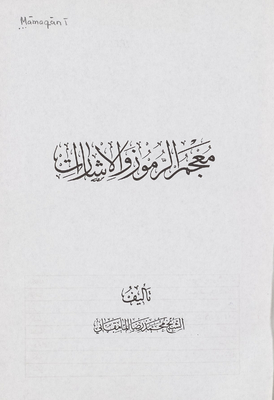 Māmaqānī
معجم الرموز والإشارات
تأليف
الشيخ محمد رضا المامقاني